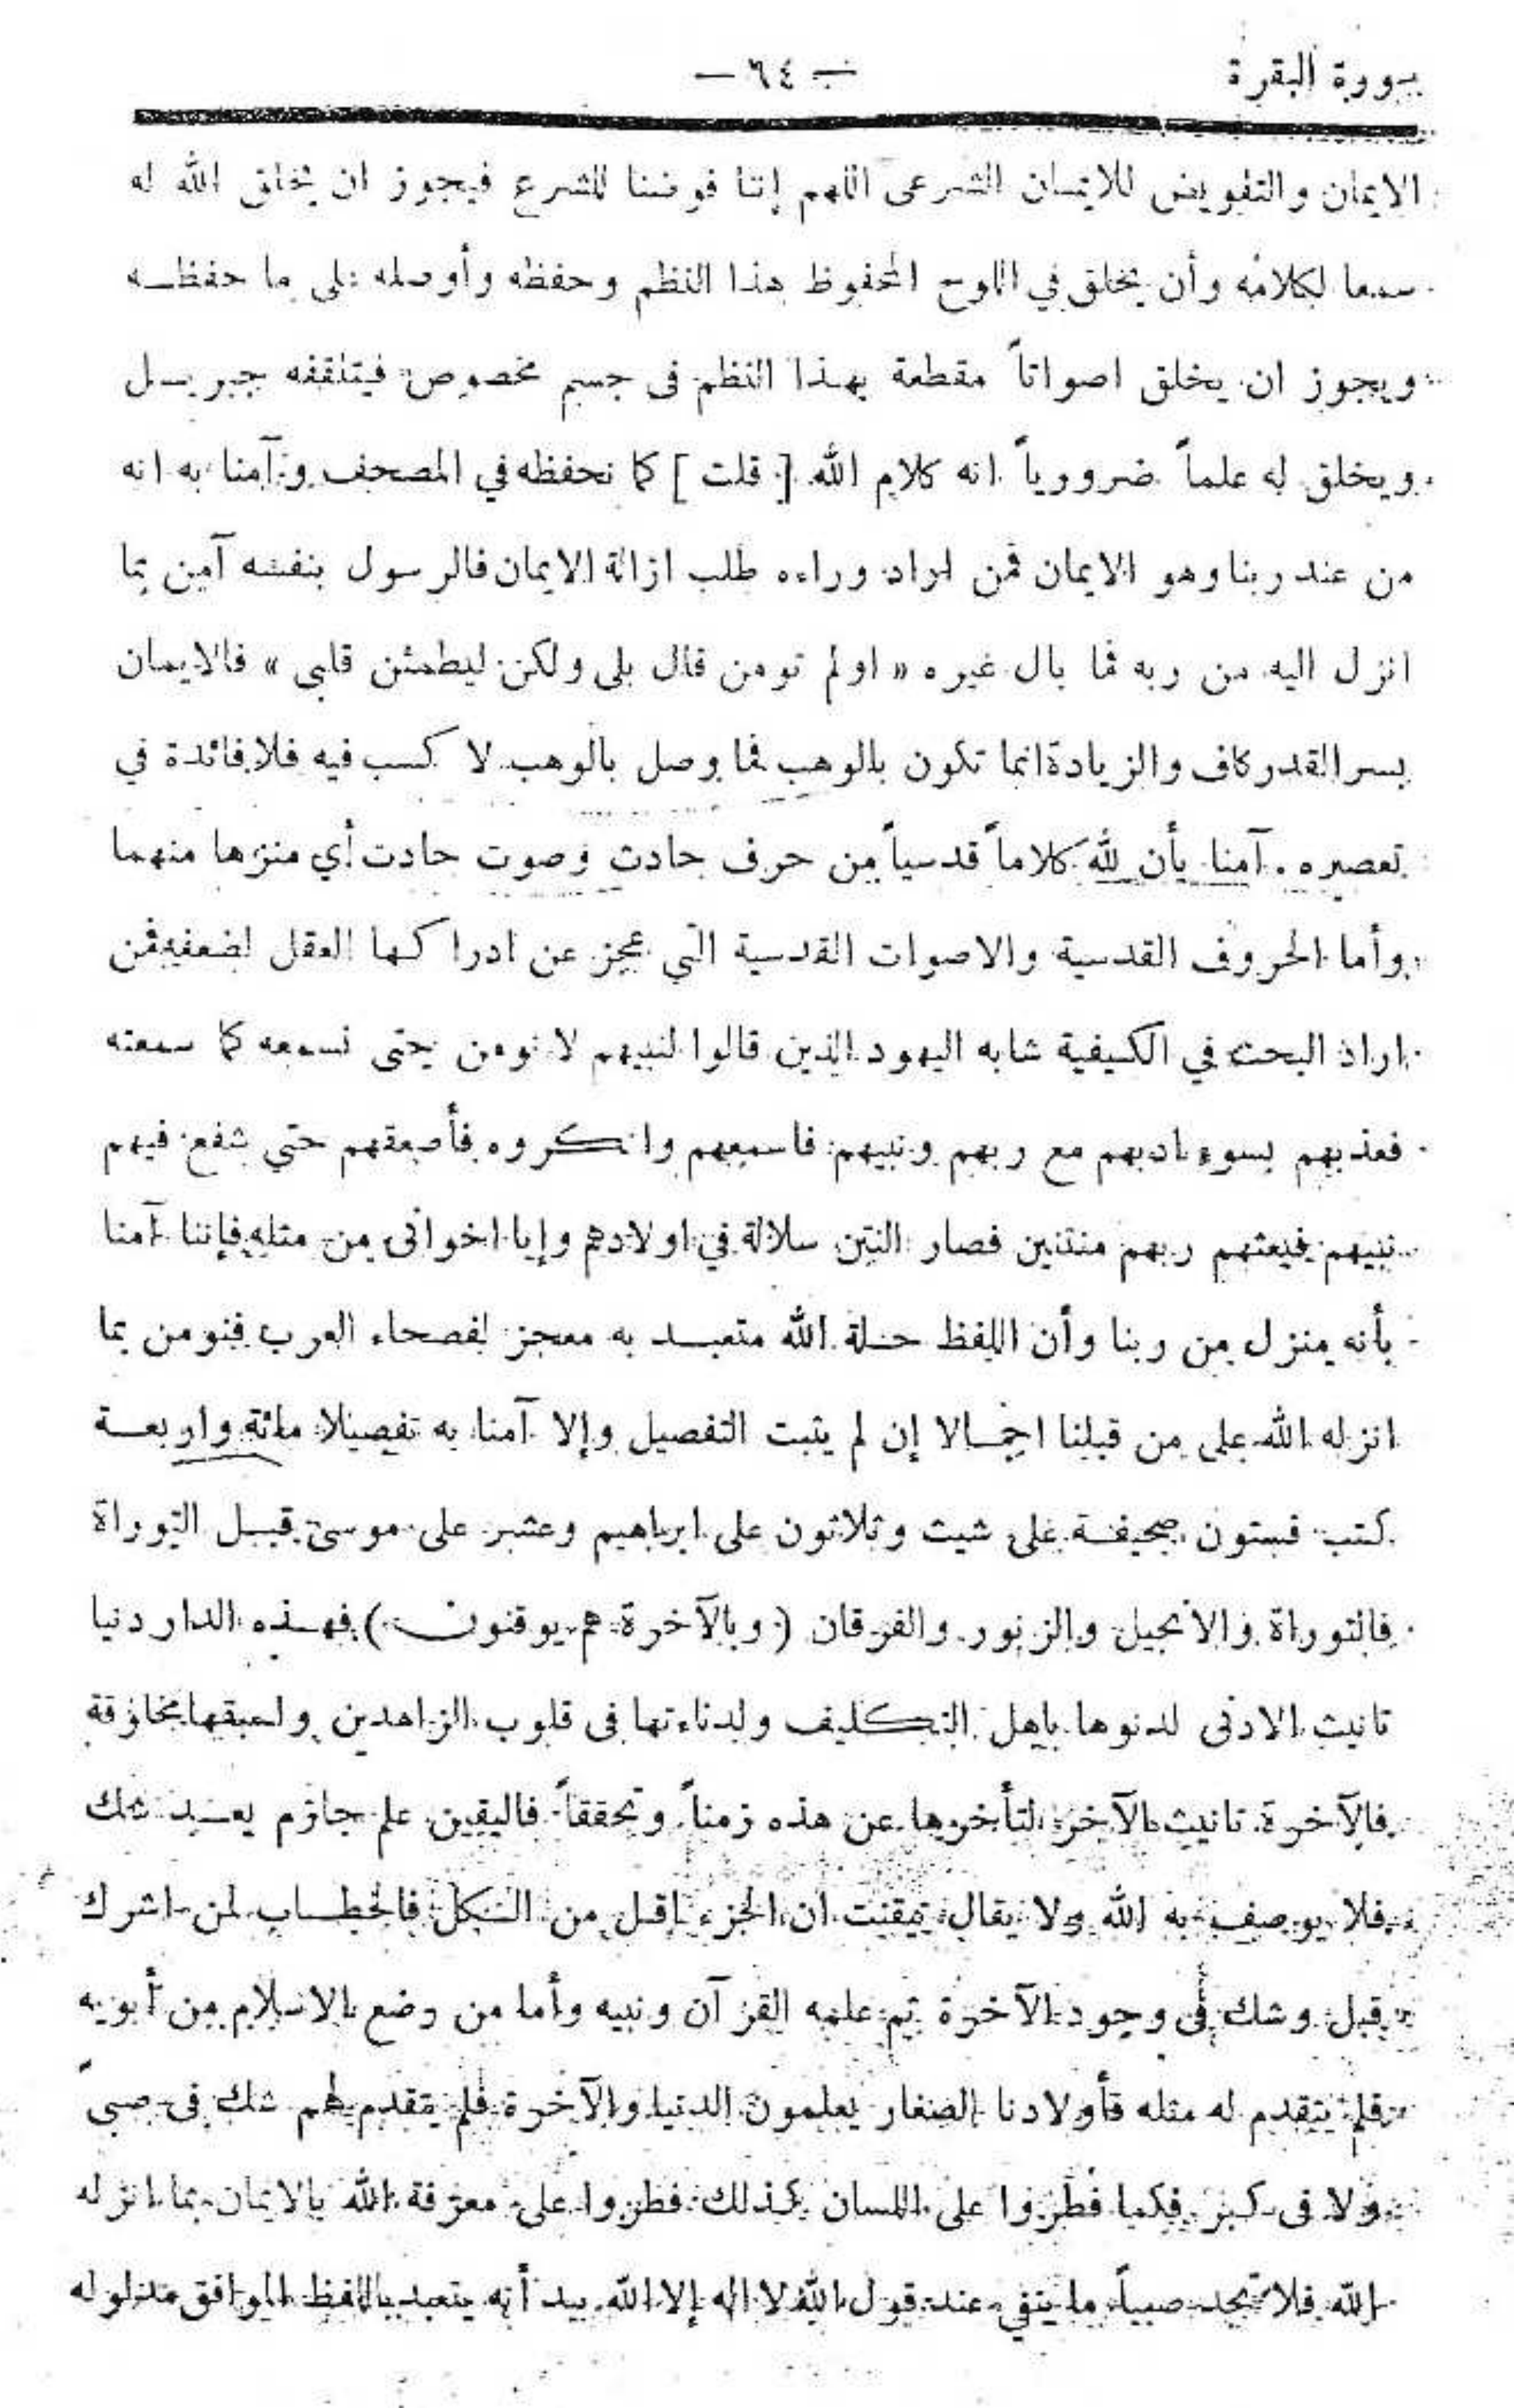 سورة البقرة
— ٦٤ —
الايمان والتفويض للايمان الشرعى اللهم إننا فوضنا للشرع فيجوز ان يخلق الله له
سمعا لكلامه وأن يخلق في اللوح المحفوظ هذا النظم وحفظه وأوصله على ما حفظـه
ويجوز ان يخلق اصواتاً مقطعة بهذا النظم فى جسم مخصوص فيتلقفه جبريـل
ويخلق له علماً ضرورياً انه كلام الله [ قلت ] كما نحفظه في المصحف وآمنا به انه
من عند ربنا وهو الايمان فمن اراد وراءه طلب ازالة الايمان فالرسول بنفسه آمن بما
انزل اليه من ربه فما بال غيره « او لم تومن قال بلى ولكن ليطمئن قلبى » فالايمان
بسر القدر كاف والزيادة انما تكون بالوهب فما وصل بالوهب لا كسب فيه فلا فائدة في
تعصيره . آمنا بأن لله كلاماً قدسياً من حرف حادث وصوت حادث أي منزها منهما
وأما الحروف القدسية والاصوات القدسية التي عجز عن ادراكها العقل لضعفه فمن
اراد البحث في الكيفية شابه اليهود الذين قالوا لنبيهم لا نومن حتى نسمعه كما سمعته
فعذبهم بسوء ادبهم مع ربهم ونبيهم فاسمعهم وانكروه فأصعقهم حتي شفع فيهم
نبيهم فبعثهم ربهم منتنين فصار النتن سلالة في اولادهم وإيا اخوانى من مثله فإننا آمنا
بأنه منزل من ربنا وأن اللفظ حـلة الله متعبـد به معجز لفصحاء العرب فنومن بما
انزله الله على من قبلنا اجمـالا إن لم يثبت التفصيل وإلا آمنا به تفصيلا مائة واربعـة
كتب فستون صحيفـة على شيث وثلاثون على ابراهيم وعشر على موسى قبـل التوراة
فالتوراة والانجيل والزبور والفرقان ( وبالآخرة هم يوقنون ) فهـذه الدار دنيا
تانيث الادنى لدنوها باهل التكليف ولدناءتها فى قلوب الزاهدين ولسبقها مخلوقة
فالآخرة تانيث الآخر لتأخرها عن هذه زمناً وتحققاً فاليقين علم جازم بعـد شك
فلا يوصف به الله ولا يقال تيقنت ان الجزء اقـل من الـكل فالخطـاب لمن اشرك
قبل وشك فى وجود الآخرة ثم علمه القرآن ونبيه وأما من رضع الاسلام من أبويه
فلم يتقدم له مثله فأولادنا الصغار يعلمون الدنيا والآخرة فلم يتقدم لهم شك فى صبىّ
ولا فى كبر فكما فطروا على اللسان كذلك فطروا على معرفة الله بالايمان بما انزله
الله فلا تجد صبياً ما ينفي عند قول الله لا اله إلا الله بيد أنه يتعبد باللفظ الموافق مدلوله